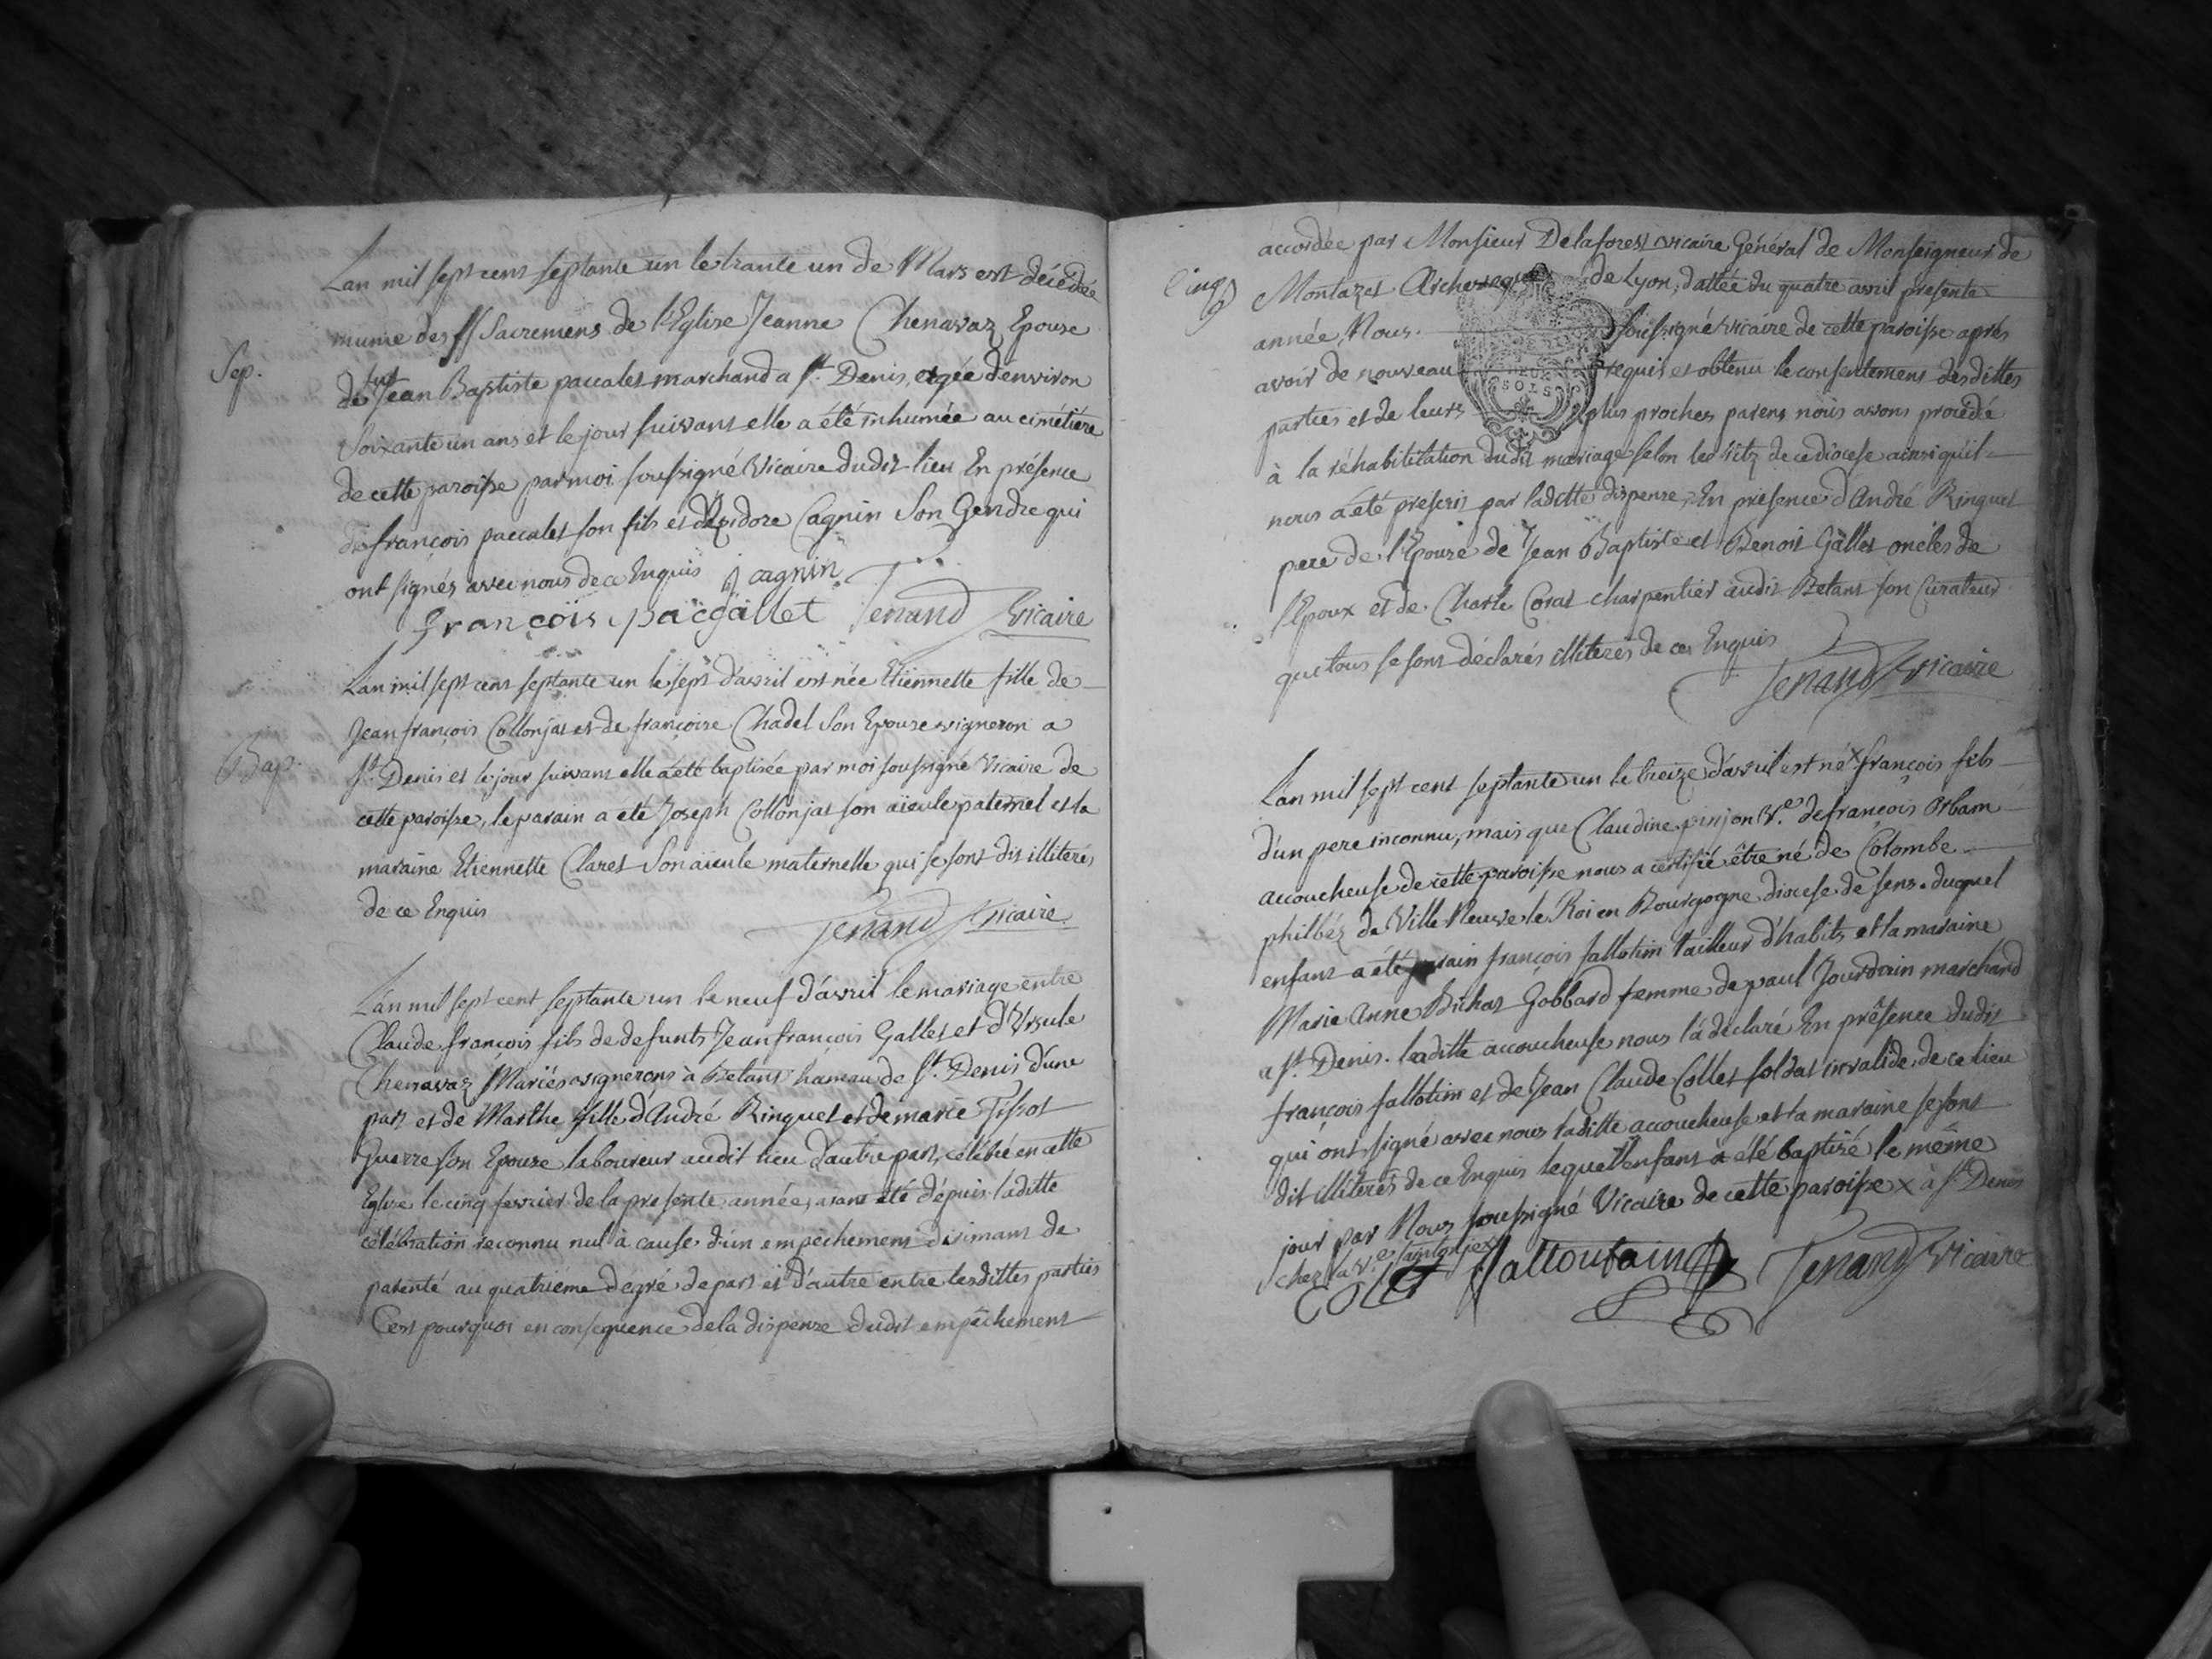 Lan mil sept cent septante un le trante un de Mars est décédée
munie des ff Sacremens de l'Eglise Jeanne Chenavaz Epouse
Sep.
de fut Jean Baptiste paccalet marchand a St. Denis, agée d'environ
soixante un ans et le jour suivant elle a été inhumée au cimétière
de cette paroisse par moi soussigné Vicaire dudit lieu En présence
de françois paccalet son fils et d'Isidore Cagnin Son Gendre qui
ont signés avec nous de ce Enquis J cagnin
françois paccallet Tenand Vicaire
Lan mil sept cent septante un le sept d'avril est née Etiennette fille de
Jean françois Collonjat et de françoise Chadel Son Epouse vigneron a
Bap.
St. Denis et le jour suivant elle a été baptisée par moi soussigné Vicaire de
cette paroisse, le parain a été Joseph Collonjat son aïeule paternel et la
maraine Etiennette Claret Son aïeule maternelle qui se sont dit illiterés
de ce Enquis
Tenand Vicaire
L'an mil sept cent septante un le neuf d'avril le mariage entre
Claude françois fils de defunts Jean françois Gallet et d'Ursule
Chenavaz Mariés vignerons à Betant hameau de St. Denis d'une
part et de Marthe fille d'André Ringuet et de marie Tissot
Guerre son Epouse laboureur audit lieu d'autre part, célébré en cette
Eglise le cinq fevrier de la presente année, aiant été dépuis laditte
célébration reconnu nul à cause d'un empêchement dirimant de
parenté au quatriéme dégré de part et d'autre entre lesdittes parties
C'est pourquoi en consequence de la dispense dudit empêchement
accordée par Monsieur Delaforest vicaire Général de Monseigneur de
Cinq
Montazet Archeveque de Lyon, dattée du quatre avril présente
année, Nous soussigné Vicaire de cette paroisse après
avoir de nouveau requis et obtenu le consentement desdittes
SOLS
parties et de leurs plus proches parens nous avons procédé
à la réhabilitation dudit mariage selon les ritz de ce diocese ainsi qu'il
nous a été préscrit par laditte dispense, En présence d'André Ringuet
pere de l'Epouse de Jean Baptiste et Benoit Gallet oncles de
l'Epoux et de Charle Corat charpentier audit Betant son Curateur
que tous se sont déclarés illiterés de ce Enquis
Tenand Vicaire
Lan mil sept cent septante un le treize d'avril est né x françois fils
d'un pere inconnu, mais que Claudine pinjon Ve. de françois Orbam
accoucheuse de cette paroisse nous a certifié être né de Colombe
philbéz de Ville Neuve le Roi en Bourgogne diocese de sens. duquel
enfant a été parain françois sallotim tailleur d'habits et la maraine
Marie Anne Bichat Gobbard femme de paul Jourdain marchand
a St. Denis. laditte accoucheuse nous l'a declaré En présence dudit
françois sallotim et de Jean Claude Collet soldat invalide de ce lieu
qui ont signé avec nous laditte accoucheuse et la maraine se sont
dit illiterés de ce Enquis lequel enfant a été baptisé le même
jour par Nous soussigné Vicaire de cette paroisse x à St. Denis
chez la Ve.
Colet Salloutain Tenand Vicaire